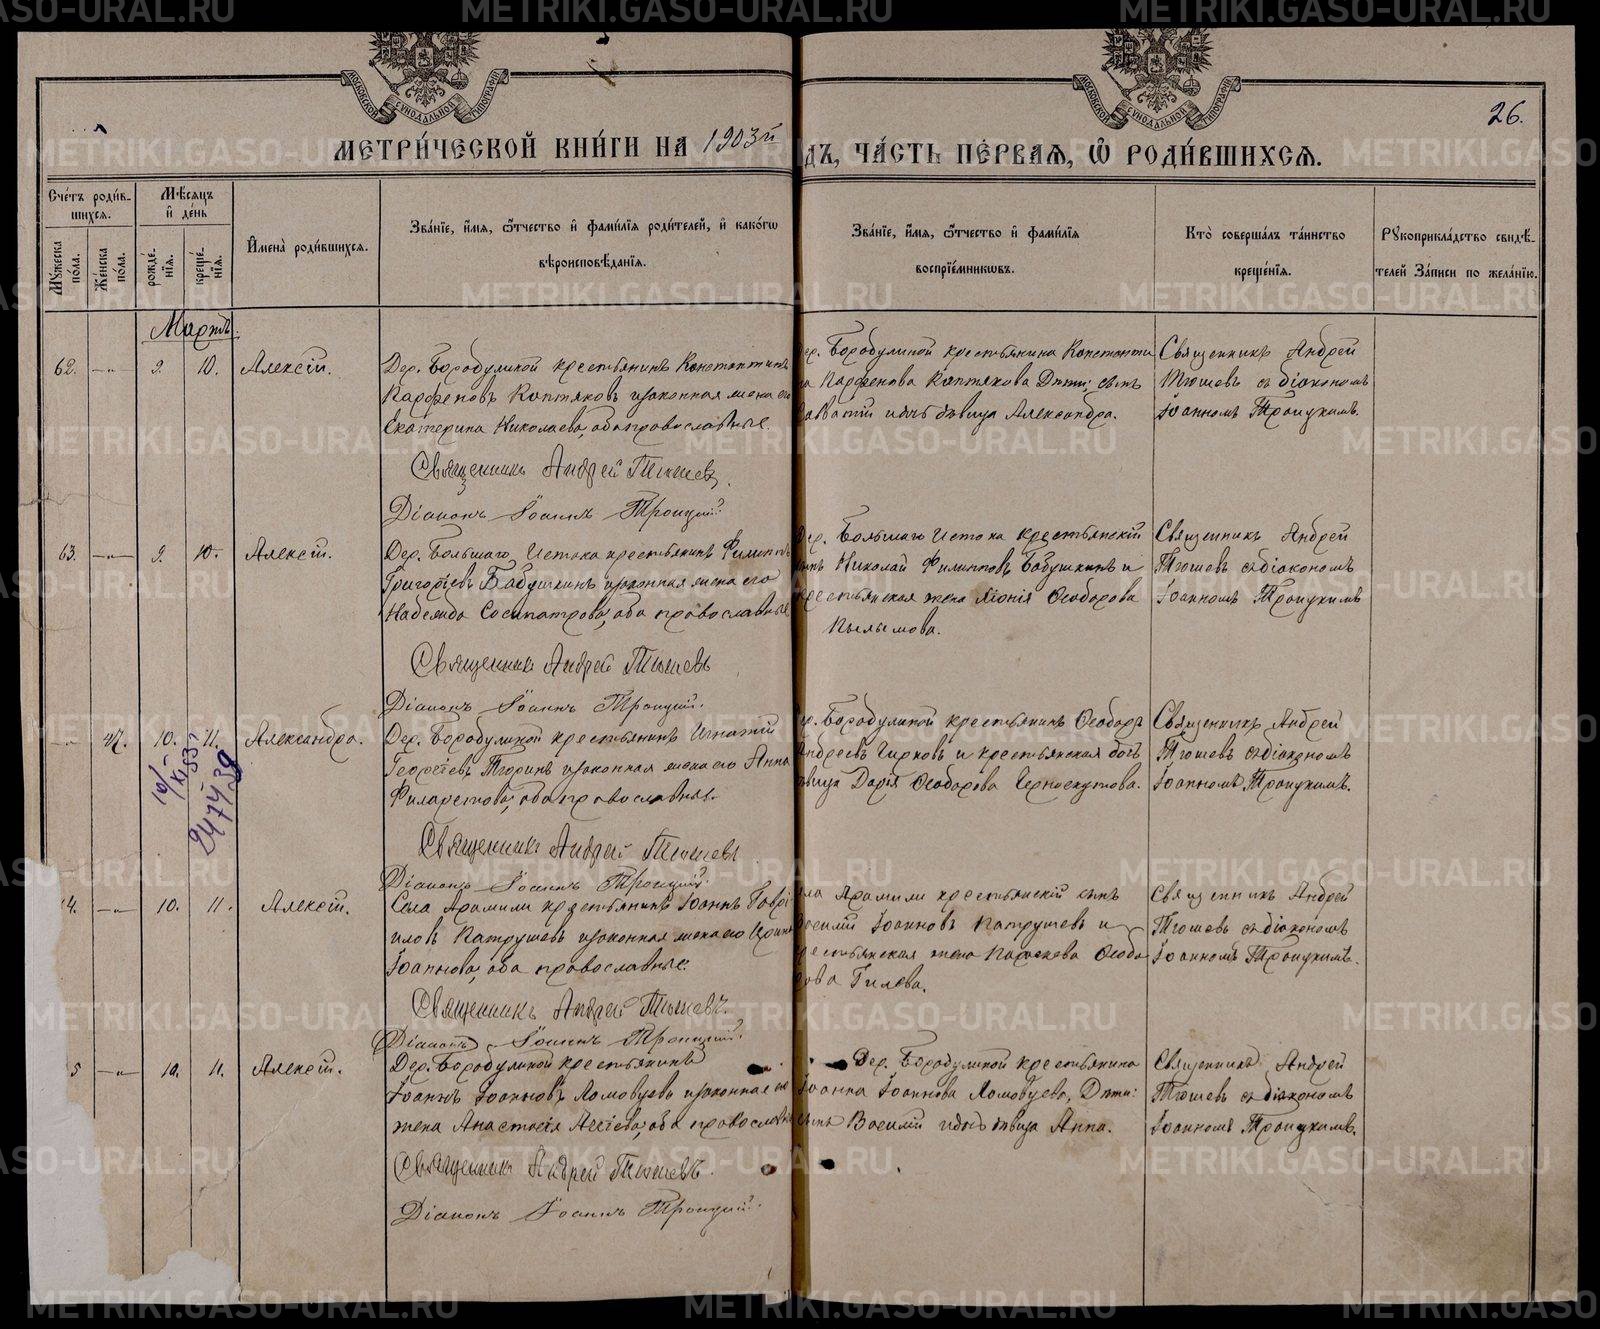 МЕТРИ́ЧЕСКОЙ КНИ́ГИ НА 1903й
ДЪ, ЧА́СТЬ ПЕ́РВАЯ, Ѡ҆ РОДИ́ВШИХСЯ.
26.
Сче́тъ роди́в-
шихся.
Мѣ́сяцъ
и҆ де́нь
Мꙋ́жеска по́ла.
Же́нска по́ла.
рожде́-
нїя.
креще́-
нїя.
И҆мена̀ роди́вшихся.
Зва́нїе, и҆́мя, ѻ҆́тчество и҆ фами́лїя роди́телей, и҆ како́гѡ
вѣроисповѣ́данїя.
Зва́нїе, и҆́мя, ѻ҆́тчество и҆ фами́лїя
воспрїе́мникѡвъ.
Кто̀ соверша́лъ та́инство
креще́нїя.
Рꙋкоприкла́дство свидѣ́-
телей за́писи по жела́нїю.
Мартъ.
62. 9. 10. Алексій.
Дер. Бородулиной крестьянинъ Константинъ
Парфеновъ Коптяковъ и законная жена его
Екатерина Николаева, оба православные.
Священникъ Андрей Тюшевъ.
Діаконъ Іоаннъ Троицкій.
Дер. Бородулиной крестьянина Константи
на Парфенова Коптякова Дѣти: сынъ
и дочь дѣвица Александра.
Священникъ Андрей
Тюшевъ съ діакономъ
Іоанномъ Троицкимъ.
63. 9. 10. Алексій.
Дер. Большаго Истока крестьянинъ Филиппъ
Григоріевъ Бабушкинъ и законная жена его
Надежда Сосипатрова, оба православные
Священникъ Андрей Тюшевъ
Діаконъ Іоаннъ Троицкій.
Дер. Большаго Истока крестьянскій
сынъ Николай Филипповъ Бабушкинъ и
крестьянская жена Феодорова
Священникъ Андрей
Тюшевъ съ діакономъ
Іоанномъ Троицкимъ
47. 10. 11. Александра.
2474
Дер. Бородулиной крестьянинъ Игнатій
Георгіевъ Тюринъ и законная жена его Анна
Филаретова, оба православные.
Священникъ Андрей Тюшевъ
Діаконъ Іоаннъ Троицкій.
Дер. Бородулиной крестьянинъ Феодоръ
Андреевъ Чирковъ и крестьянская дочь
дѣвица Дарія Феодорова Черноскутова.
Священникъ Андрей
Тюшевъ съ діакономъ
Іоанномъ Троицкимъ.
4. 10. 11. Алексій.
Села Арамили крестьянинъ Іоаннъ Гаврі
иловъ Патрушевъ и законная жена его Ирина
Іоаннова, оба православные.
Священникъ Андрей Тюшевъ.
Діаконъ Іоаннъ Троицкій.
Села Арамили крестьянскій сынъ
Василій Іоанновъ Патрушевъ и
крестьянская жена Параскева Феодо
рова Гилева.
Священникъ Андрей
Тюшевъ съ діакономъ
Іоанномъ Троицкимъ.
5 10. 11. Алексій.
Дер. Бородулиной крестьянинъ
Іоаннъ Іоанновъ Ломовцевъ и законная его
жена Анастасія, оба православные
Священникъ Андрей Тюшевъ.
Діаконъ Іоаннъ Троицкій.
Дер. Бородулиной крестьянина
Іоанна Іоаннова Ломовцева, Дѣти:
сынъ Василій и дочь дѣвица Анна.
Священникъ Андрей
Тюшевъ съ діакономъ
Іоанномъ Троицкимъ.
METRIKI.GASO-URAL.RU